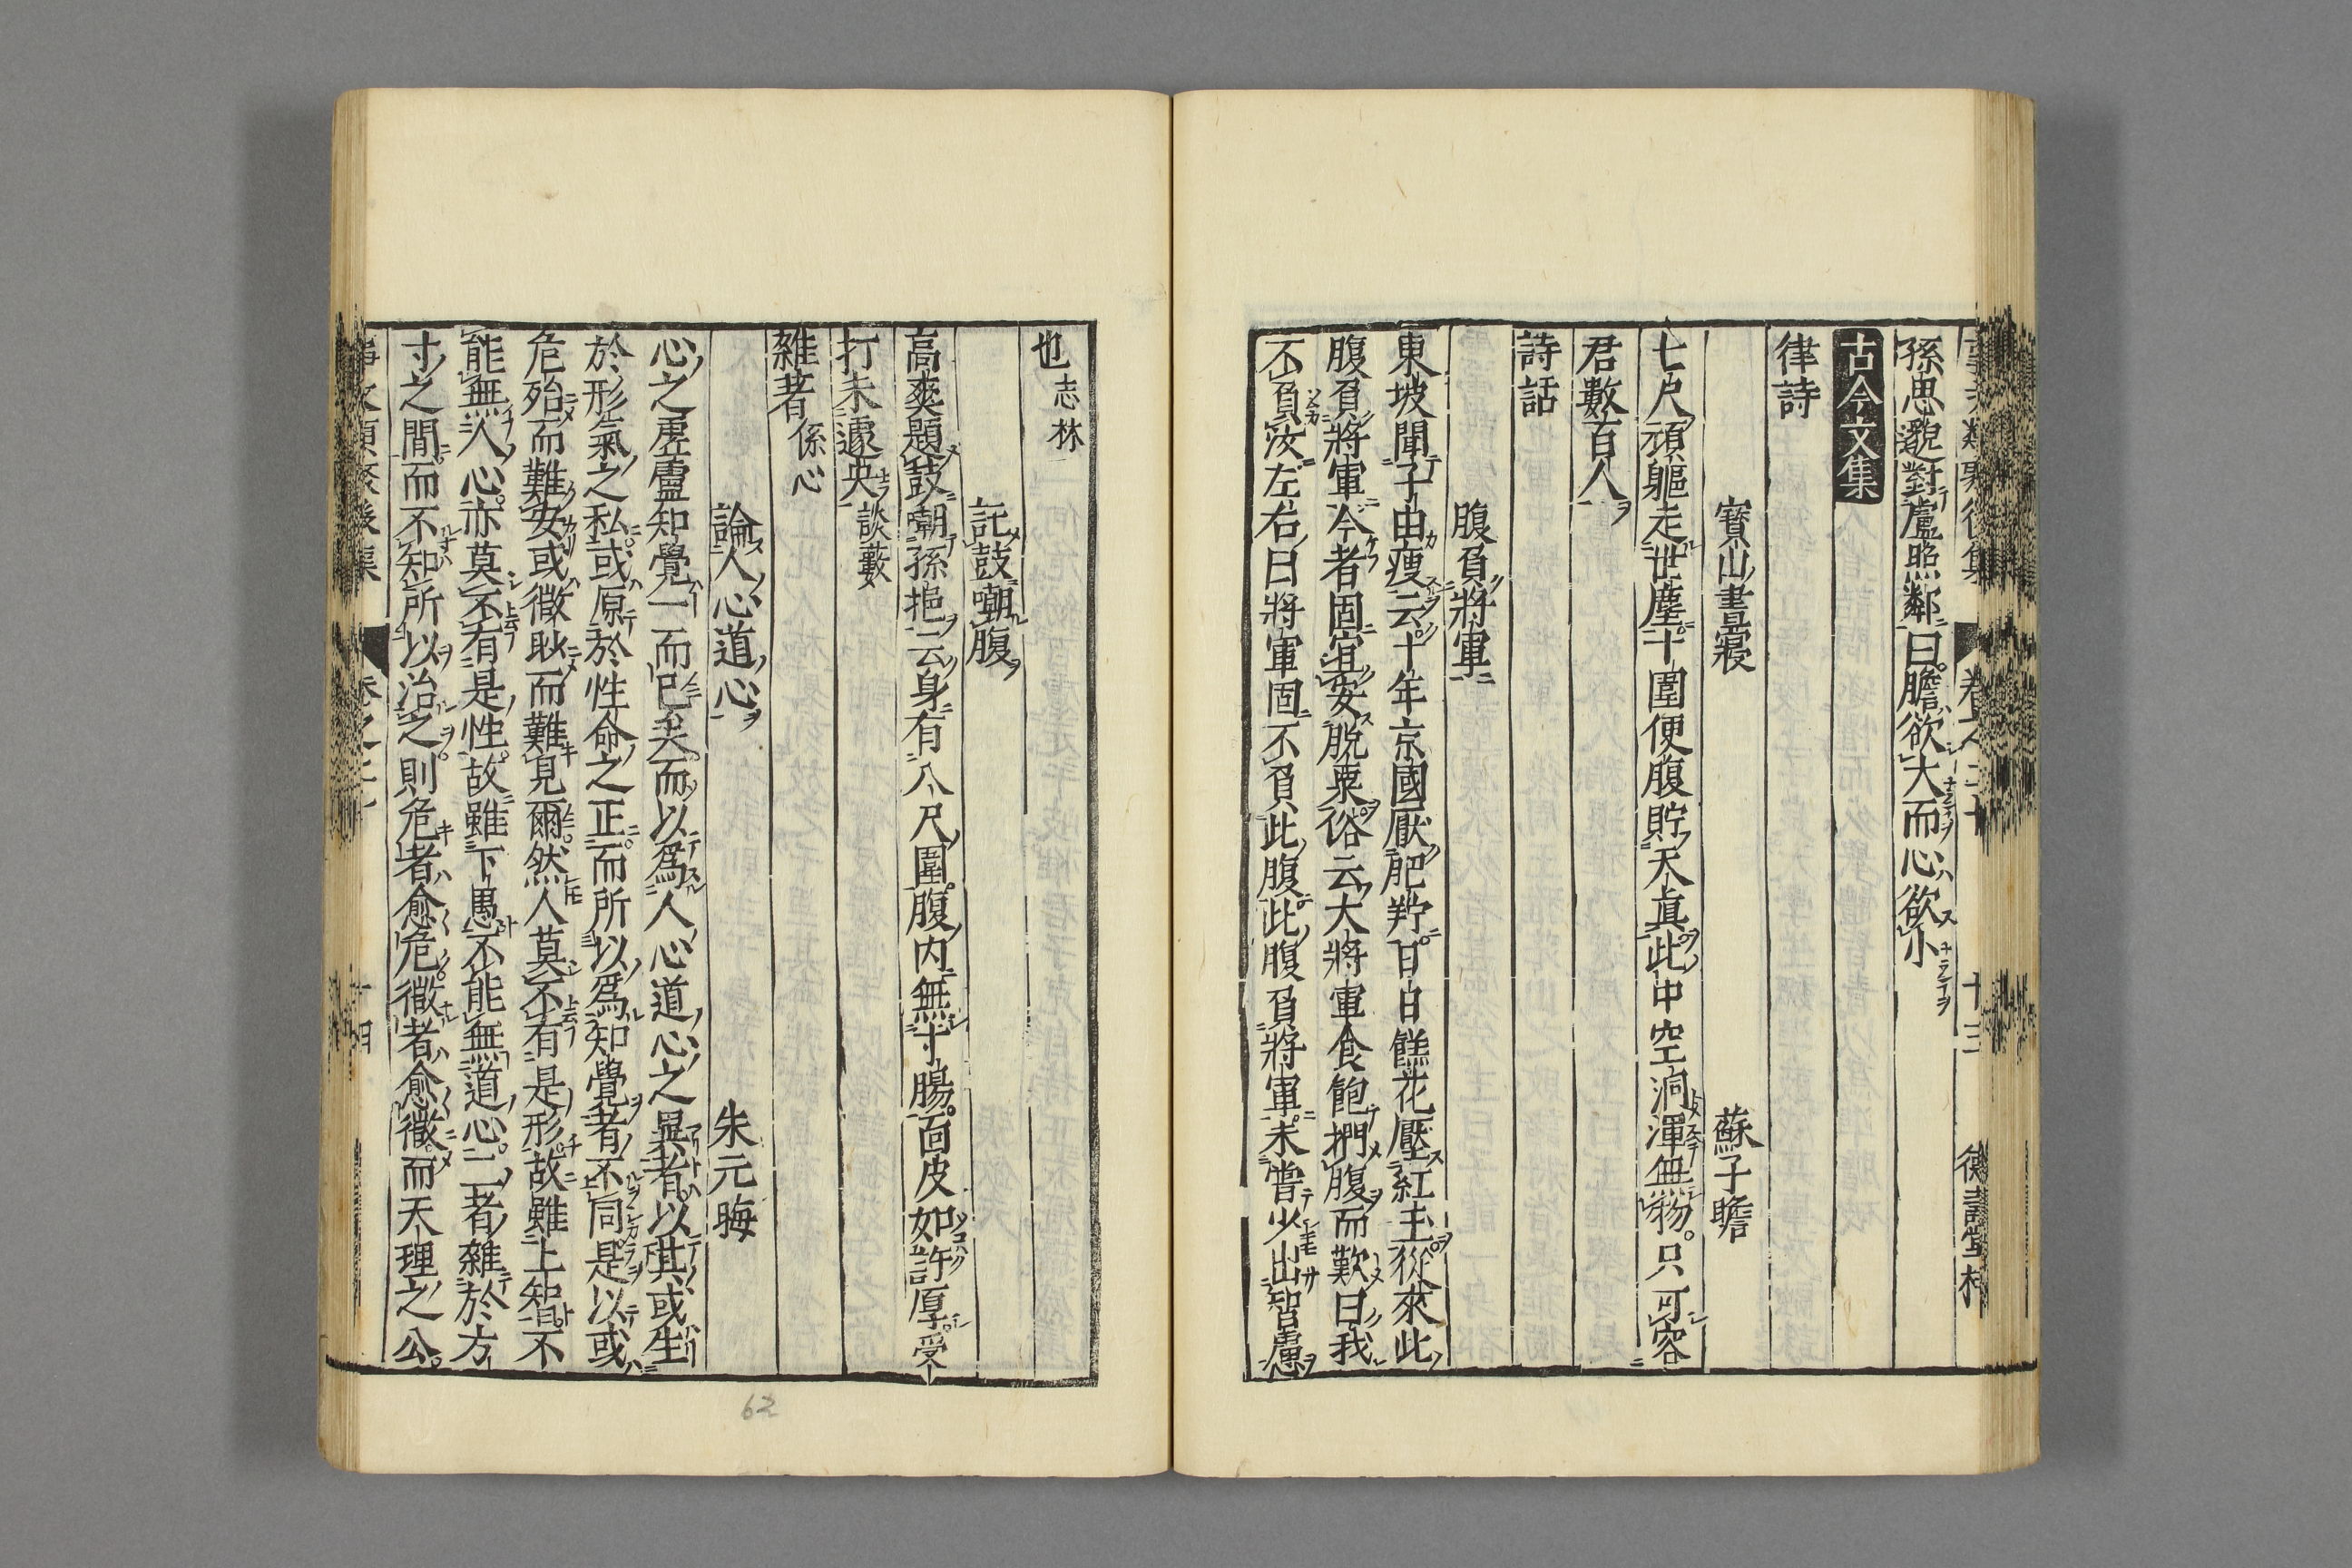 事文類聚後集 卷之二十 十三 德壽堂梓
孫思邈對盧照鄰曰膽欲大而心欲小
古今文集
律詩
寶山晝寢 蘇子瞻
七尺頑軀走世塵十圍便腹貯天眞此中空洞渾無物只可容
君數百人
詩話
腹負將軍
東坡聞子由瘦云十年京國厭肥羜日日餻花壓紅玉從來此
腹負將軍今者固宜安脫粟俗云大將軍食飽捫腹而歎曰我
不負汝左右曰將軍固不負此腹此腹負將軍未嘗少出智慮
也 志林
託鼓嘲腹
高爽題鼓嘲孫挹云身有八尺圍腹內無寸腸面皮如許厚受
打未遽央 談藪
雜著 係心
論人心道心 朱元晦
心之虛靈知覺一而已矣而以爲人心道心之異者以其或生
於形氣之私或原於性命之正而所以爲知覺者不同是以或
危殆而難安或微眇而難見爾然人莫不有是形故雖上智不
能無人心亦莫不有是性故雖下愚不能無道心二者雜於方
寸之間而不知所以治之則危者愈危微者愈微而天理之公
事文類聚後集 卷之二十 十四
62